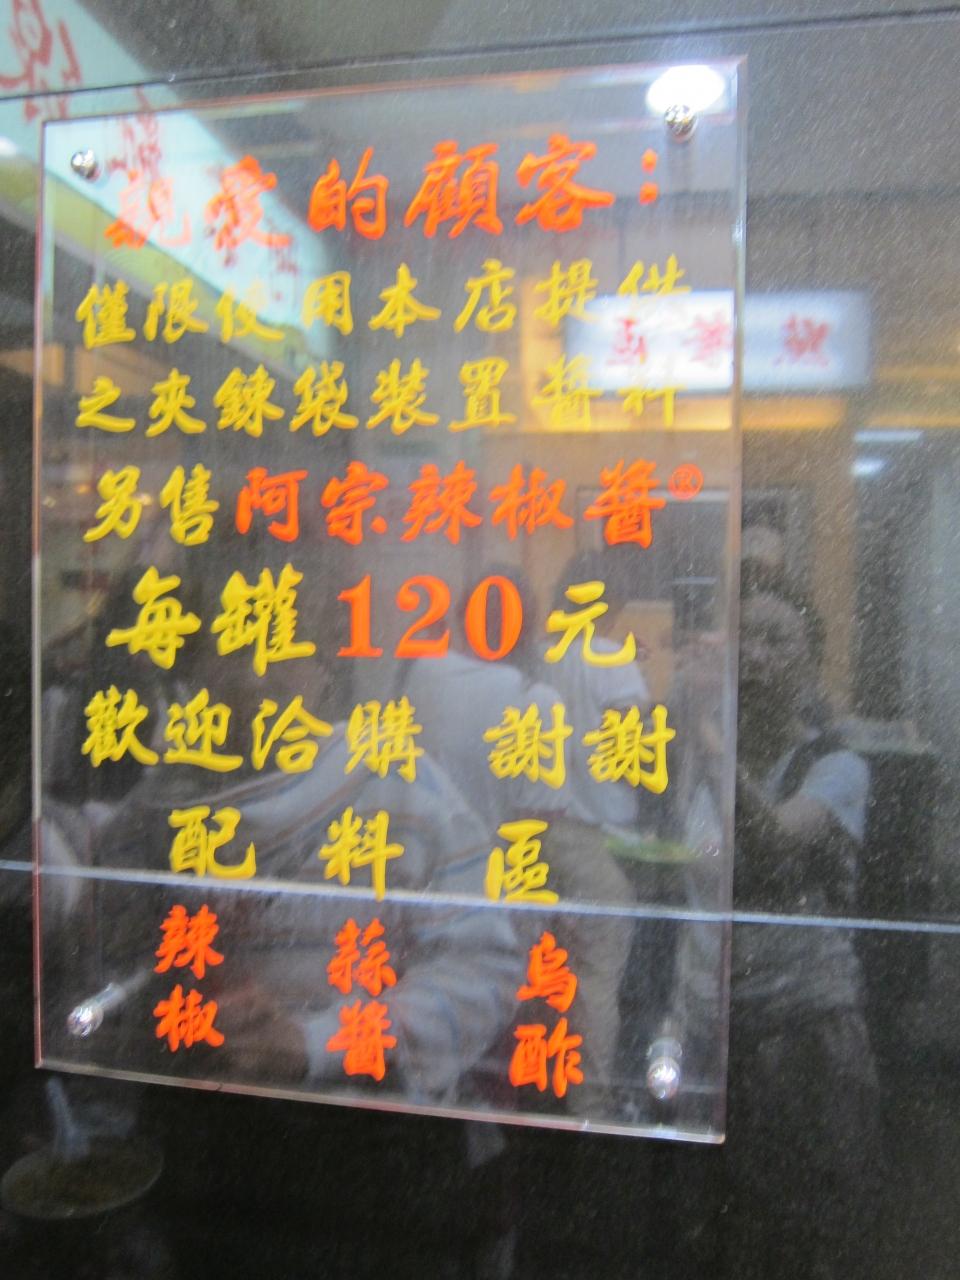 親愛的顧客：
僅限使用本店提供
之夾鍊袋裝置醬料
另售阿宗辣椒醬®
每罐120元
歡迎洽購 謝謝
配料區
辣椒
蒜醬
烏酢